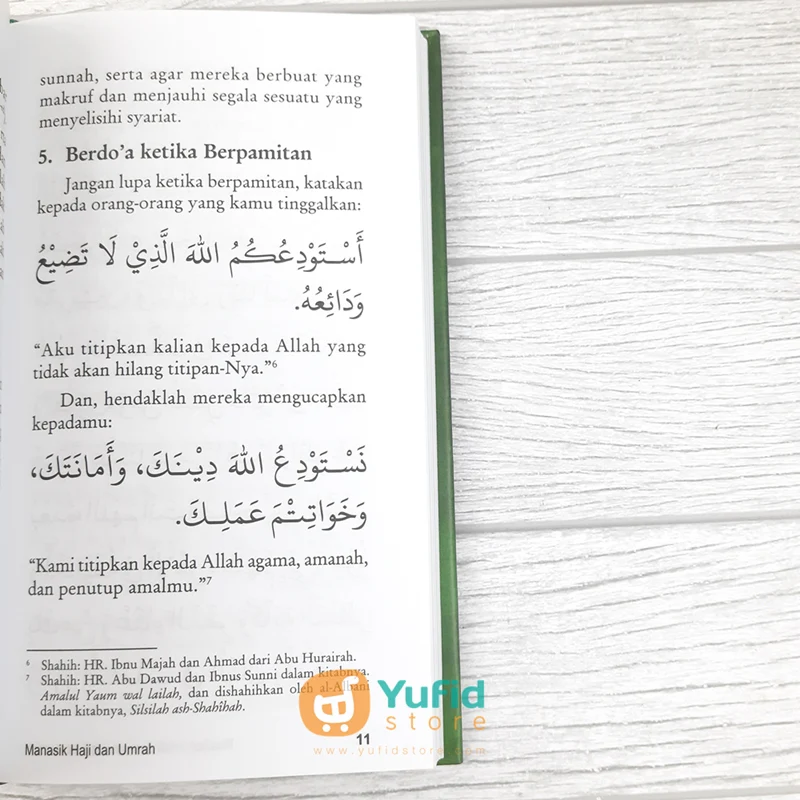 sunnah, serta agar mereka berbuat yang
makruf dan menjauhi segala sesuatu yang
menyelisihi syariat.
5. Berdo'a ketika Berpamitan
Jangan lupa ketika berpamitan, katakan
kepada orang-orang yang kamu tinggalkan:
أَسْتَوْدِعُكُمُ اللهَ الَّذِيْ لَا تَضِيْعُ
وَدَائِعُهُ.
“Aku titipkan kalian kepada Allah yang
tidak akan hilang titipan-Nya.”⁶
Dan, hendaklah mereka mengucapkan
kepadamu:
نَسْتَوْدِعُ اللهَ دِيْنَكَ، وَأَمَانَتَكَ،
وَخَوَاتِيْمَ عَمَلِكَ.
“Kami titipkan kepada Allah agama, amanah,
dan penutup amalmu.”⁷
⁶ Shahih: HR. Ibnu Majah dan Ahmad dari Abu Hurairah.
⁷ Shahih: HR. Abu Dawud dan Ibnus Sunni dalam kitabnya.
Amalul Yaum wal lailah, dan dishahihkan oleh al-Albani
dalam kitabnya, Silsilah ash-Shahîhah.
Manasik Haji dan Umrah
11
Yufid
store
www.yufidstore.com